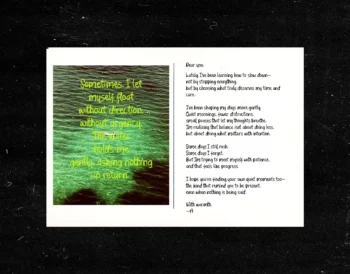 Sometimes I let
myself float
without direction,
without urgency.
The water
holds me
gently, asking nothing
in return.
Dear you,
Lately I've been learning how to slow down—
not by stopping everything,
but by choosing what truly deserves my time and
care.
I've been shaping my days more gently.
Quiet mornings, fewer distractions,
small pauses that let my thoughts breathe.
I'm realizing that balance isn't about doing less,
but about doing what matters with intention.
Some days I still rush.
Some days I forget.
But I'm trying to meet myself with patience,
and that feels like progress.
I hope you're finding your own quiet moments too—
the kind that remind you to be present,
even when nothing is being said.
With warmth,